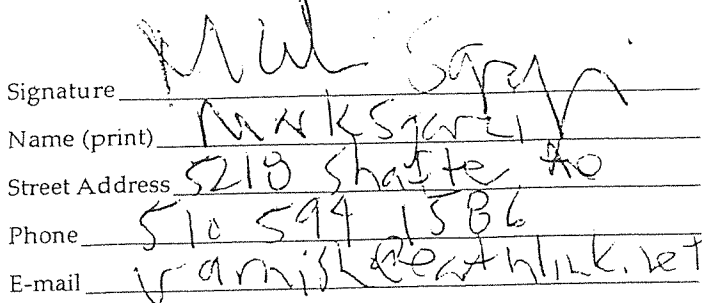 Signature
Name (print) Mark Sgarzi
Street Address 5218 Shafte
Phone 510 594 1586
E-mail varnish@earthlink.net